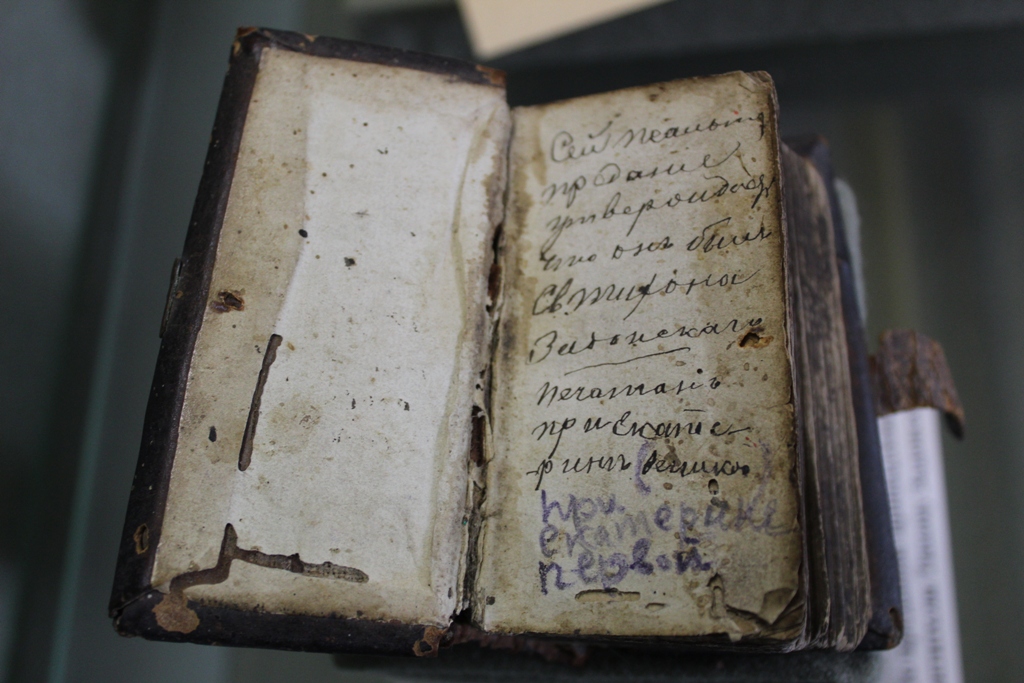 Сей псалтиръ
предание
утверждаетъ
что онъ былъ
Св Тихона
Задонскаго
печатанъ
при Екате-
ринѣ (Велико)
при
екатерине
первой